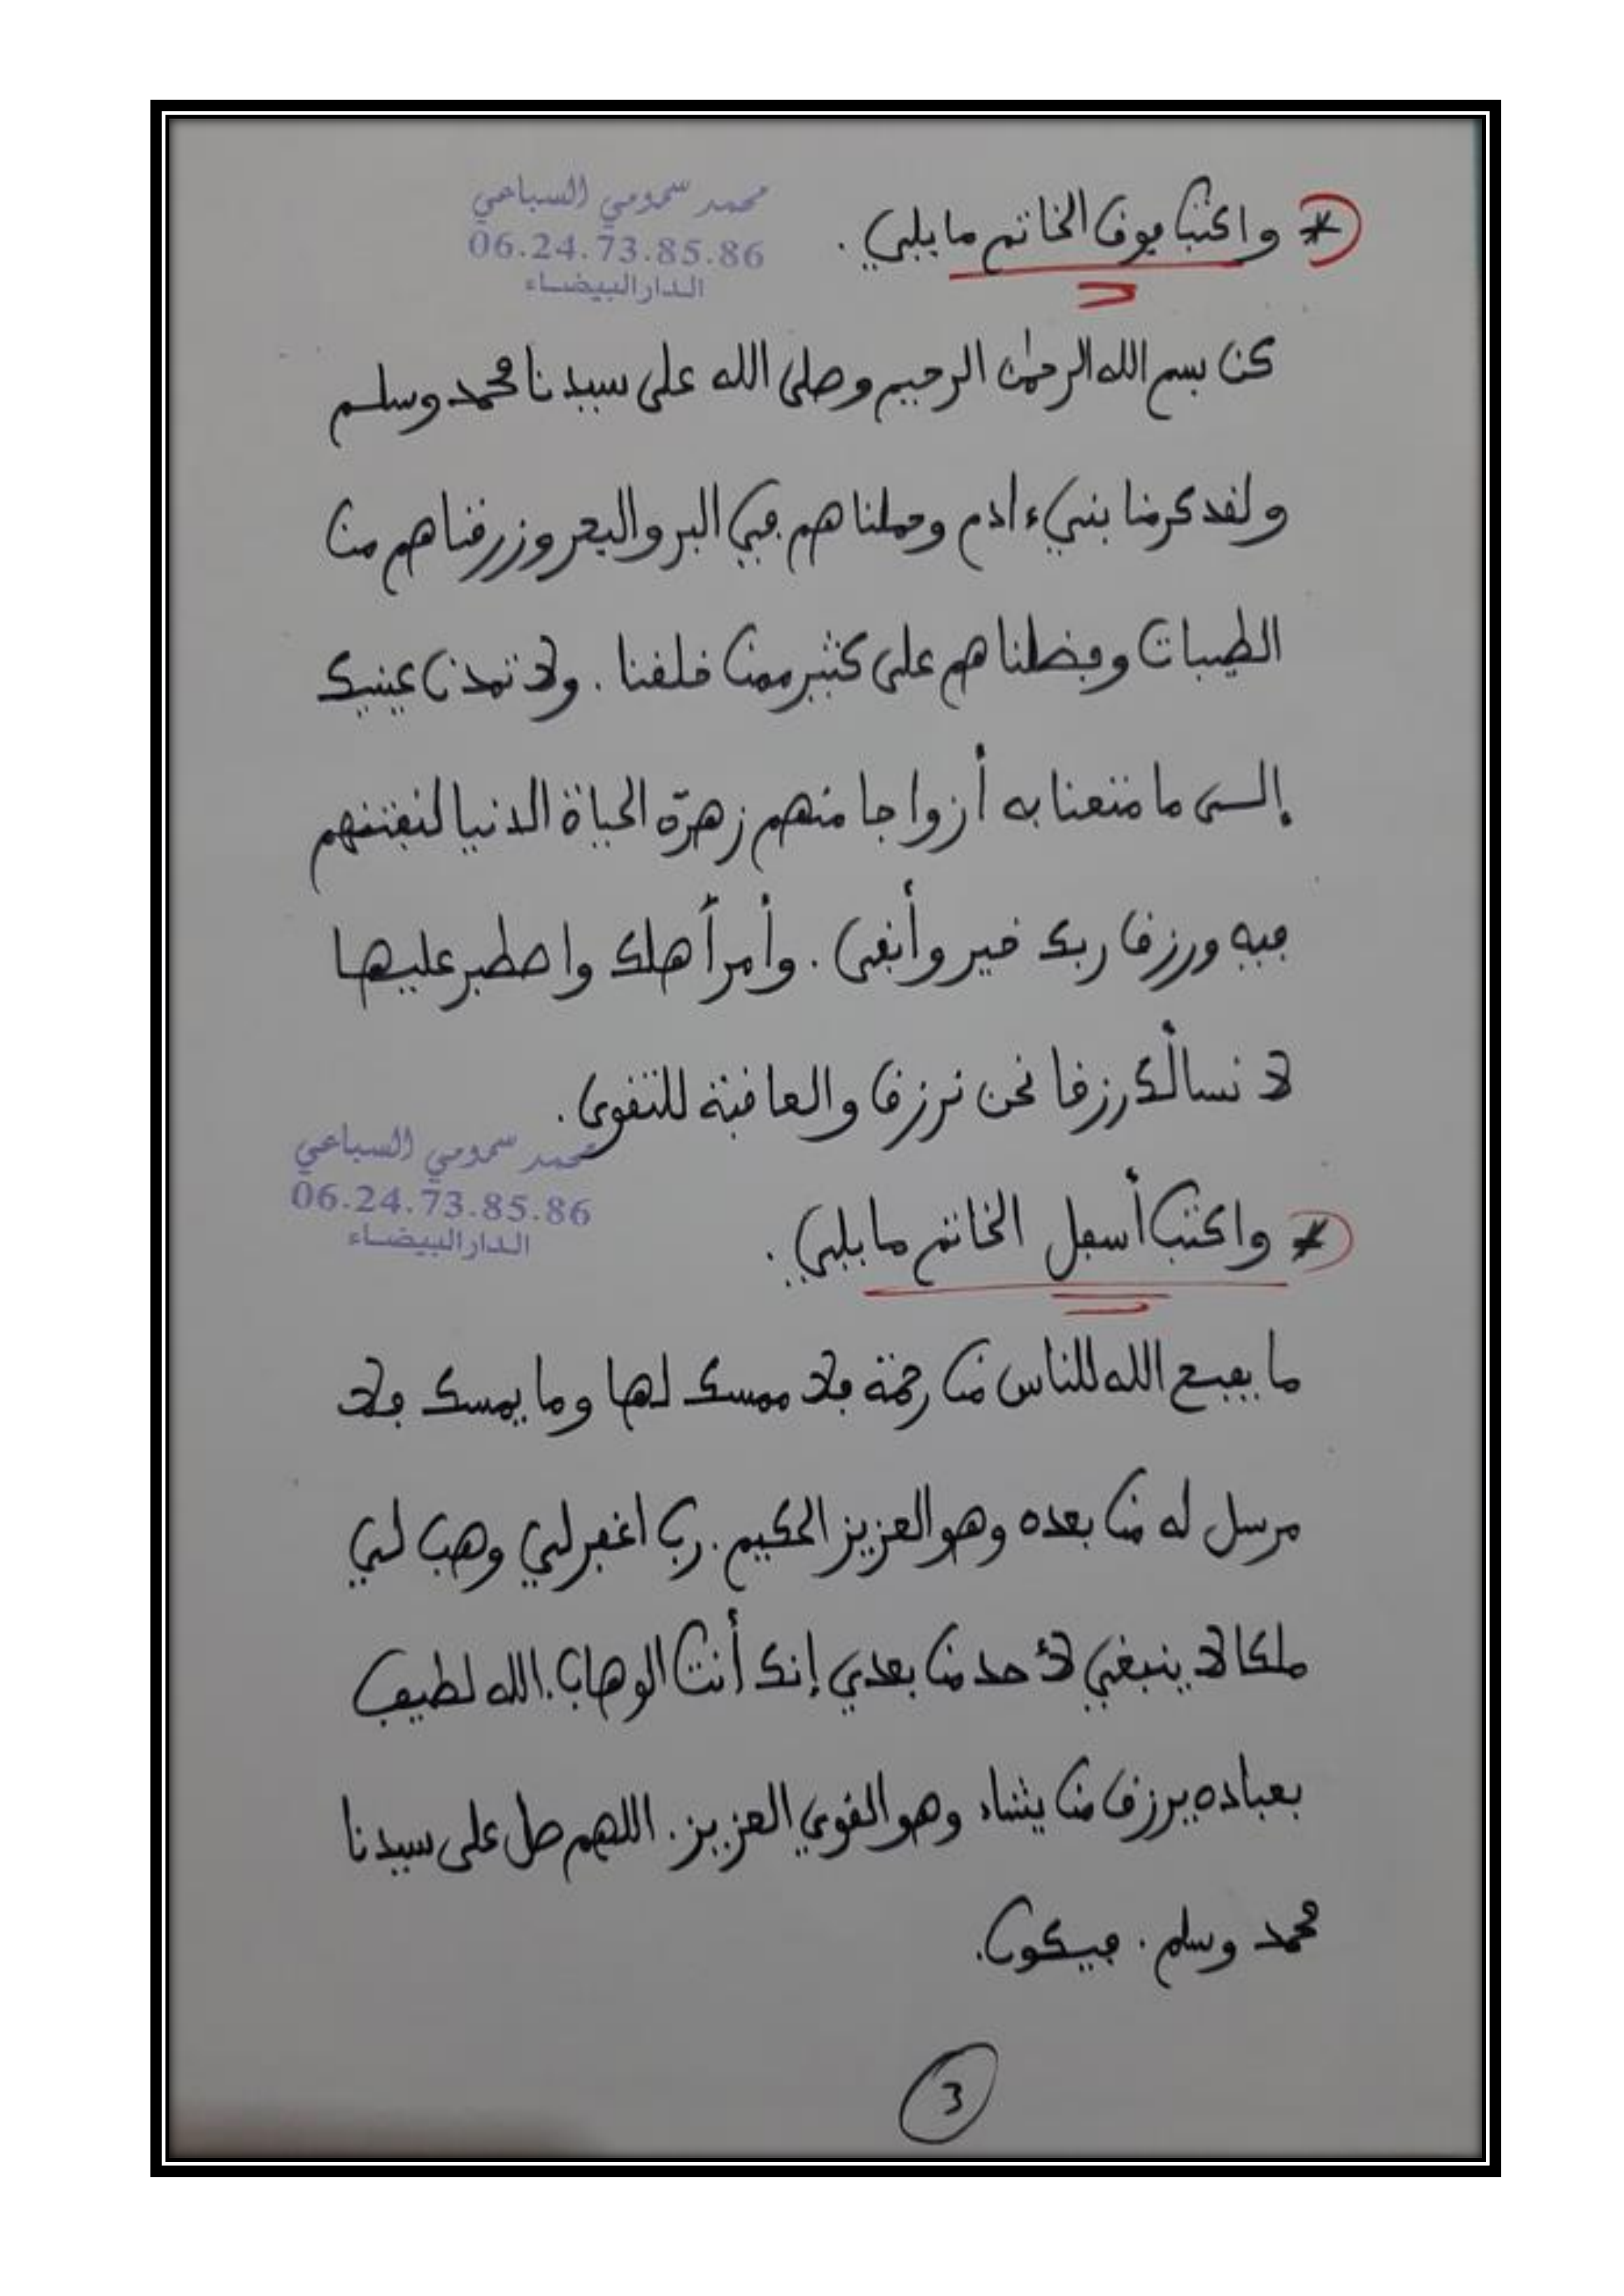 محمد سمومي السباعي
06.24.73.85.86
الدار البيضاء
* واكتب فوق الخاتم ما يلي .
كن بسم الله الرحمٰن الرحيم وصلى الله على سيدنا محمد وسلم
ولقد كرمنا بني ءادم وحملناهم في البر والبحر وزرقناهم من
الطيبات وفضلناهم على كثير ممن خلقنا . ولا تمدن عينيك
إلى ما متعنا به أزواجا منهم زهرة الحياة الدنيا لنفتنهم
فيه ورزق ربك خير وأبقى . وأمر أهلك واصطبر عليها
لا نسألك رزقا نحن نرزق والعاقبة للتقوى .
محمد سمومي السباعي
06.24.73.85.86
الدار البيضاء
* واكتب أسفل الخاتم ما يلي .
ما يفتح الله للناس من رحمة فلا ممسك لها وما يمسك فلا
مرسل له من بعده وهو العزيز الحكيم . رب اغفر لي وهب لي
ملكا لا ينبغي لأحد من بعدي إنك أنت الوهاب . الله لطيف
بعباده يرزق من يشاء وهو القوي العزيز . اللهم صل على سيدنا
محمد وسلم . فيكون .
3